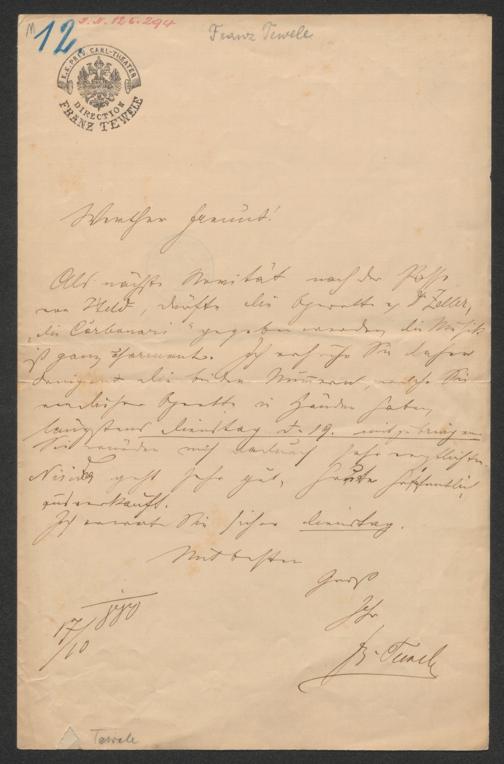 M
12.
I.N. 126.294
Franz Tewele
K.K. PRIV. CARL-THEATER
DIRECTION
FRANZ TEWELE
Werther Freund!
Als nächste Novität nach der Posse
von Held, dürfte die Operette v. Dr Zeller,
"die Carbonari" gegeben werden, die Musik
ist ganz charmant. Ich ersuche Sie daher
die beiden Nummern, welche Sie
Operette in Händen haben,
längstens Dienstag d. 19. mitzubringen
Sie würden mich dadurch sehr verpflichten.
Nisida geht sehr gut, heute hoffentlich
ausverkauft.
Ich erwarte Sie sicher Dienstag.
Mit besten
Gruß
Ihr
Fr. Tewele
17/10 880
Tewele